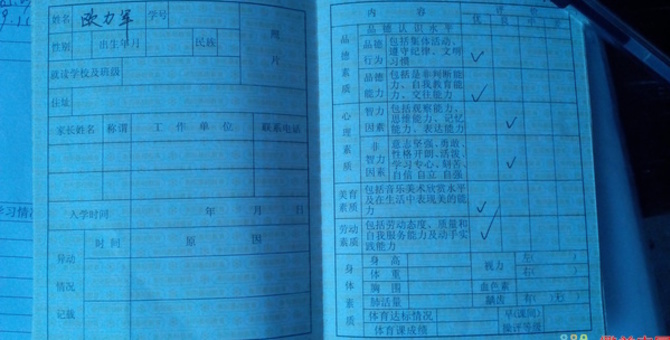 姓名 欧力军 学号
照
性别 出生年月 民族
片
就读学校及班级
住址
家长姓名 称谓 工作单位 联系电话
入学时间 年 月 日
时间 原因
异动
情况
记载
内容 评
优 良
品德认识水平
品德素质
品德行为 包括集体活动、
遵守纪律、文明
习惯
品德能力 包括是非判断能
力、自我教育能
力、交往能力
心理素质
智力因素 包括观察能力、
思维能力、记忆
能力、表达能力
非智力因素 意志坚强、勇敢、
性格开朗、活泼、
学习专心、刻苦、
自信 自立 自强
美育素质 包括音乐美术欣赏水平
及在生活中表现美的能
力
劳动素质 包括劳动态度、质量和
自我服务能力及动手实
践能力
身体素质
身高 视力 左( )
体重 右( )
胸围 血色素
肺活量 龋齿 有( )无( )
体育达标情况 早(课间)
体育课成绩 操评等级
学习情况